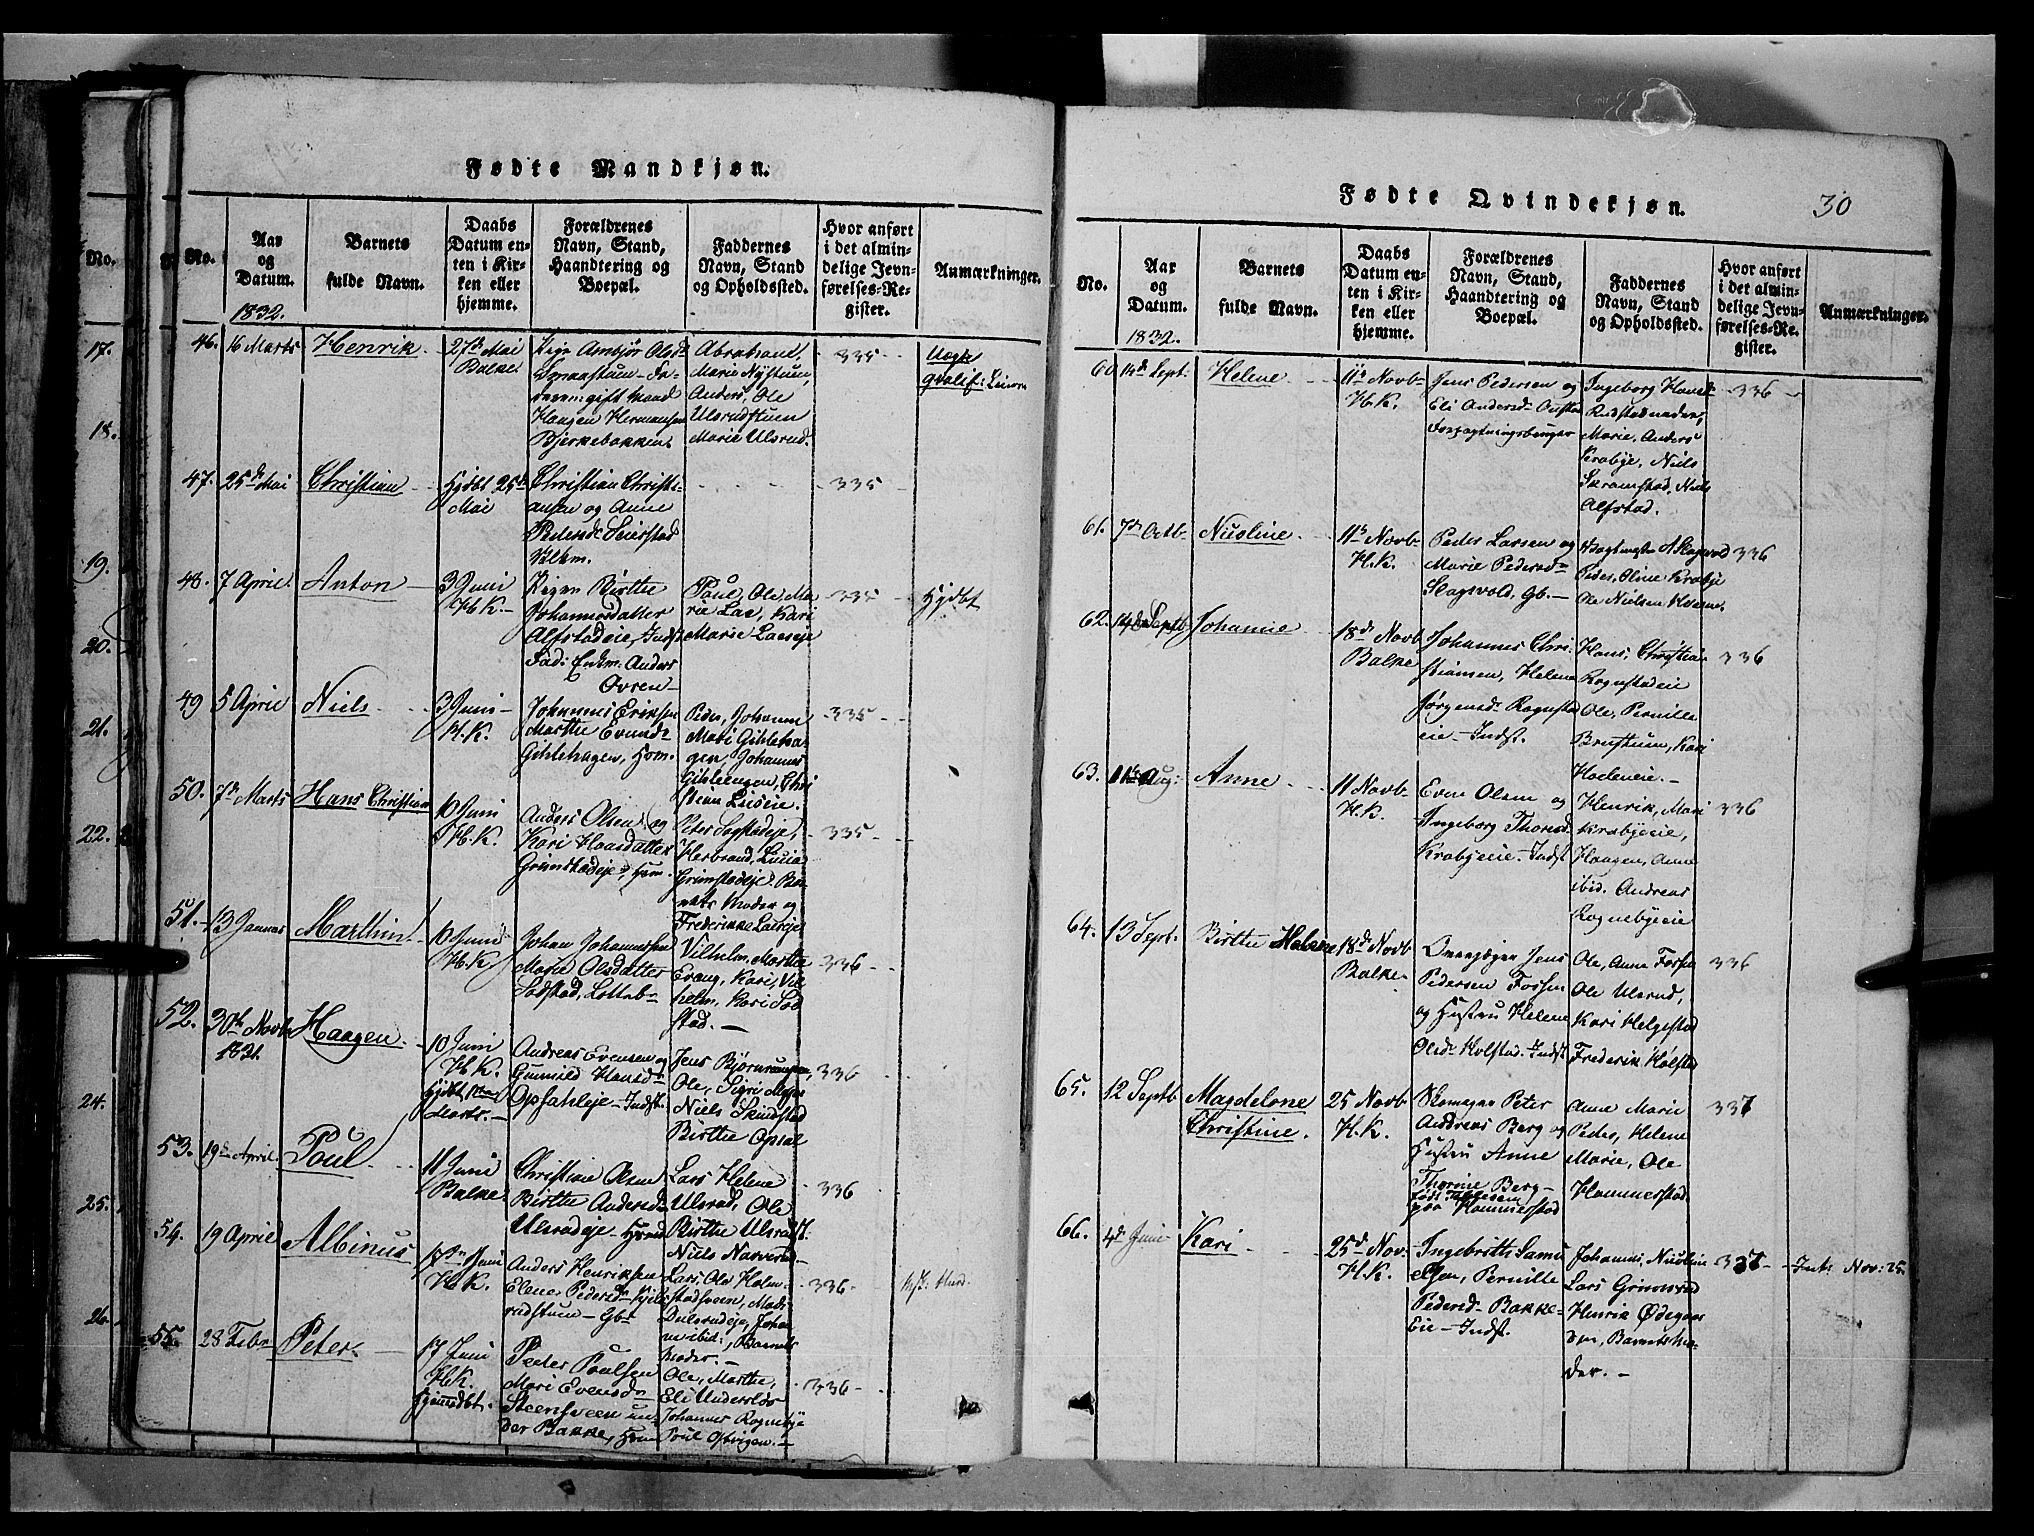 Fødte Mandkjøn.
No.
No.
Aar og Datum.
1832.
Barnets fulde Navn.
Daabs Datum enten i Kirken eller hjemme.
Forældrenes Navn, Stand, Haandtering og Boepæl.
Faddernes Navn, Stand og Opholdssted.
Hvor anført i det almindelige Jevnførelses-Register.
Anmærkninger.
17.
18.
19.
20.
21.
22.
24.
25.
26.
46. 16 Marts Henrik 27de Mai Balke
Pige Ambjør Olsd
Smaastuen - Fa-
deren gift Mand
Haagen Hermansen
Bjerkebakken.
Abraham,
Marie Nÿstuen,
Anders, Ole
Ulsrudstuen
Marie Ulsrud.
335
47. 25de Mai Christian Hjdbt 25de Mai
Christian Christi-
ansen og Anne
Pedersd Leierstad
335
48. 7 April Anton 3 Juni H.K.
Pigen Birthe
Johannesdatter
Alfstadeie, Indst
Fad: Enkm. Anders
Ovren
Poul, Ole Ma-
rie Lae, Kari
Marie Laeeje
335
Hjdbt
49 5 April Niels 3 Juni H.K.
Johannes Eriksen
Marthe Evensd
Gihlehagen, Hsm.
Peder, Johanne
Mari Gihleha-
gen, Johannes
Gihleengen, Chri
stian Lundeie.
335
50. 7de Marts Hans Christian 10 Juni H.K.
Anders Olsen og
Kari Hansdatter
Grimstadeje, Hsm.
Peter Sogstadeje,
Herbrand, Lucia
Grimstadeje. Bar-
nets Moder og
Frederikke Laeeje
335
51. 13 Januar Marthin 10 Juni H.K.
Johan Johannessen
Marie Olsdatter
Sodstad, Leilb
Vilhelm, Marthe
Evang, Kari, Vil-
helm, Kari Sod
stad.
336
52. 30te Novbr 1831. Haagen 10 Juni H.K. hjdbt Marts.
Andreas Evensen og
Gunnild Hansd
Opsahleje - Indst.
Jens Bjørnerud,
Ole, Sigri
Niels Skindstad
Birthe Opsal
336
53. 19de April Poul 11 Juni Balke
Christian Olsen
Birthe Andersd
Ulsrudeje - Hsmd
Lars Helene
Ulsrud, Ole
Birthe Ulsrudst.
Niels Narverud
336
54. 19 April Albinus 17de Juni H.K.
Anders Henriksen
Elene Pedersd
rudstuen - Gb
Lars, Ole Holm-
stadsveen, Mad:
Dulsrudeje, Johan
ne ibid:, Barnets
Moder.
336
55. 28 Febr Peter 17 Juni H.K. hjemmedbt.
Peder Poulsen
Mari Evensd
Steensveen un-
der Bakke, Hsm
Ole, Marthe,
Eli Undersløs
Johannes Rognebye
Poul Østvigen.
336
Fødte Qvindekjøn.
30
No.
Aar og Datum.
1832.
Barnets fulde Navn.
Daabs Datum enten i Kirken eller hjemme.
Forældrenes Navn, Stand, Haandtering og Boepæl.
Faddernes Navn, Stand og Opholdssted.
Hvor anført i det almindelige Jevnførelses-Register.
Anmærkninger.
60 14de Sept. Helene 11te Novb H.K.
Jens Pedersen og
Eli Andersd
Forpagtningsbruger
Ingeborg Hansd
Rudstadnedre,
Marie, Anders
Krabye, Niels
Skramstad, Niels
Alfstad.
336
61. 7de Octb. Nicoline 11te Novb H.K.
Peder Larsen og
Marie Pedersd
Slagsvold, Gb.
Vagtmester A Slagsvold
Peder, Oline Krabye
Ole Nielsen Hveem
336
62. 14de Septb. Johanne 18de Novb Balke
Johannes Chri-
stiansen, Helene
Jørgensd. Rognstad
eie - Indst.
Hans, Christian
Rognstadeie
Ole, Pernille
Brustuen, Kari
Hoeleneie.
336
63. 11te Aug: Anne 11 Novb H.K.
Even Olsen og
Ingeborg Thoresd
Krabyeeie - Indst
Henrik, Mari
Krabyeeie,
Haagen, Anne
ibid. Andreas
Rognebyeeie
336
64. 13 Sept. Birthe Helene 18de Novb Balke
Jens
Pedersen Fossen
og Hustru Helene
Olsd Holstad. Indst
Ole, Anne Fossen
Ole Ulsrud,
Kari Helgestad
Frederik Holstad
336
65. 12 Septb Magdelone Christine. 25 Novb H.K.
Skomager Peter
Andreas Berg og
Hustru Anne
Thorine Berg
paa Hammerstad
Anne Marie
Peder, Helene
Marie, Ole
Hammerstad.
337
66. 4de Juni Kari 25de Nov. H.K.
Ingebrith Samu-
elsen, Pernille
Pedersd Bakke-
Eie - Indst.
Johannes, Nicoline
Lars Grimsrud
Henrik Ødegaar
den, Barnets Mo-
der.
337
Int. Nov: 25